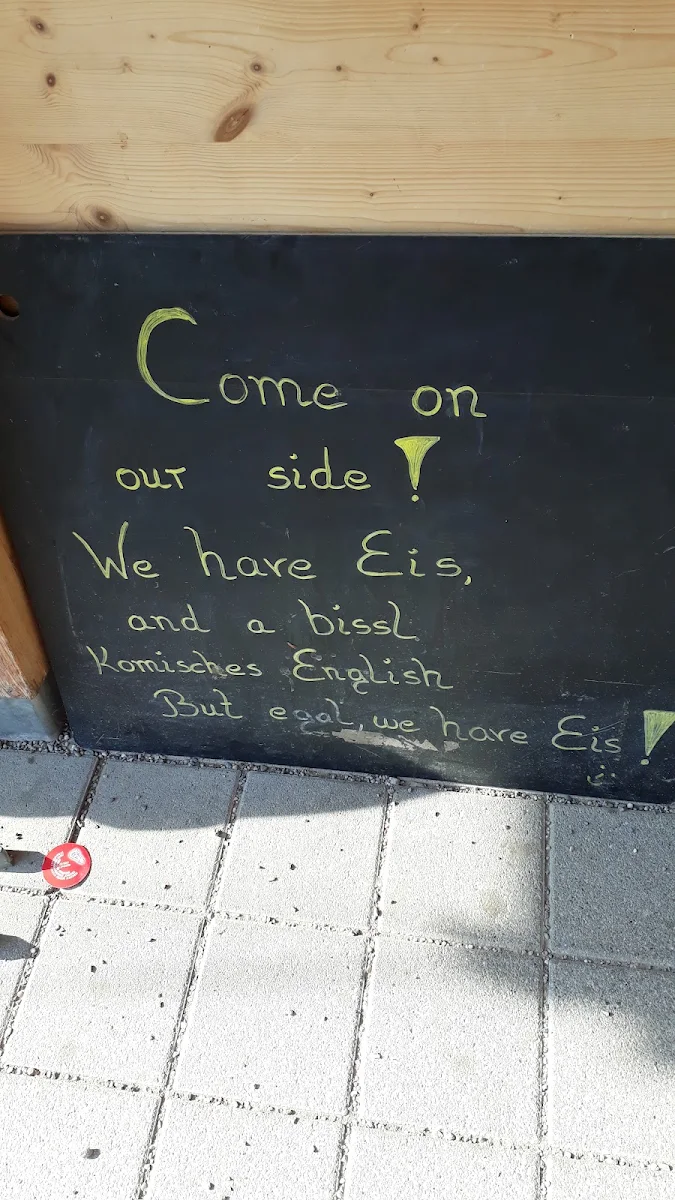 Come on
our side!
We have Eis,
and a bissl
Komisches English
But egal, we have Eis!